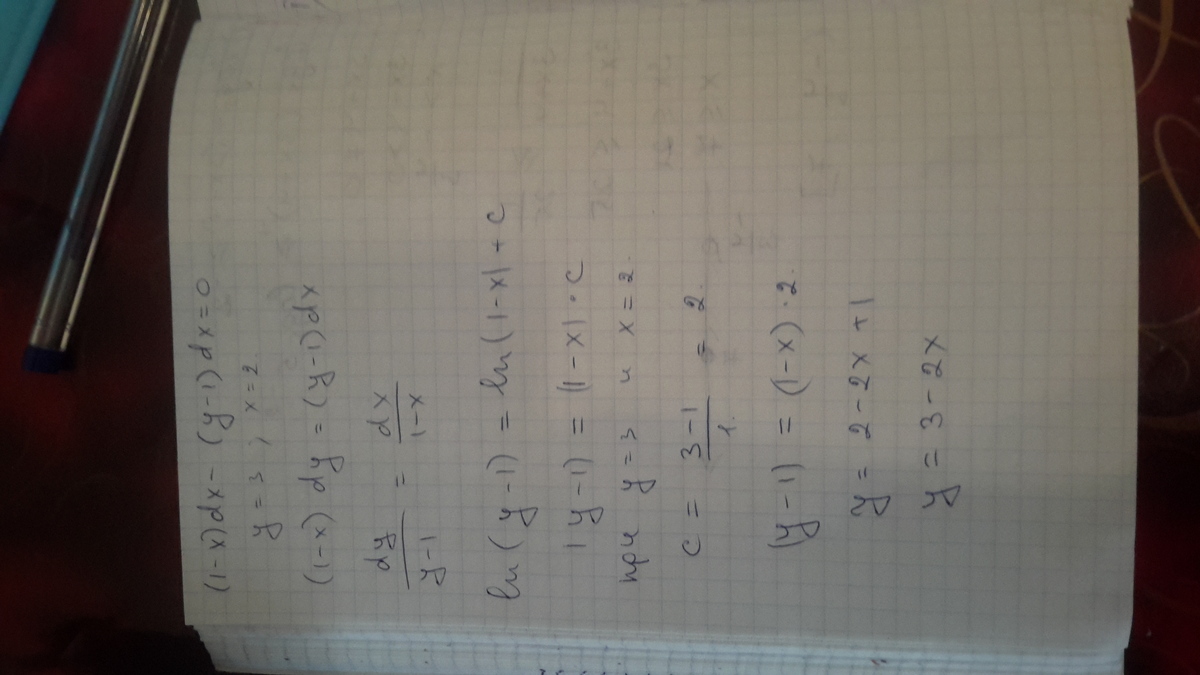 (1-x)dx - (y-1)dx = 0
y = 3, x = 2.
(1-x) dy = (y-1) dx
dy/y-1 = dx/1-x
ln(y-1) = ln(1-x| + C
|y-1) = (1-x| · C
при y=3 и x=2.
C = 3-1/1. = 2.
(y-1) = (1-x)·2.
y = 2-2x+1
y = 3-2x